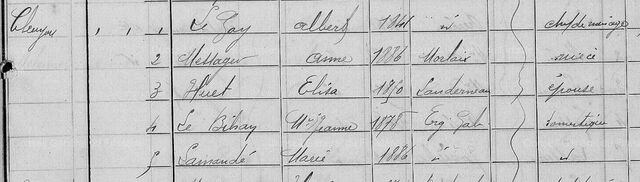 1 Le Gay Albert 1841 id chef de ménage
2 Messager Anne 1886 Morlaix nièce
3 Huet Elisa 1870 Landerneau épouse
4 Le Bihay Mie Jeanne 1878 Erg. Gab. domestique
5 Lamandé Marie 1886 id id